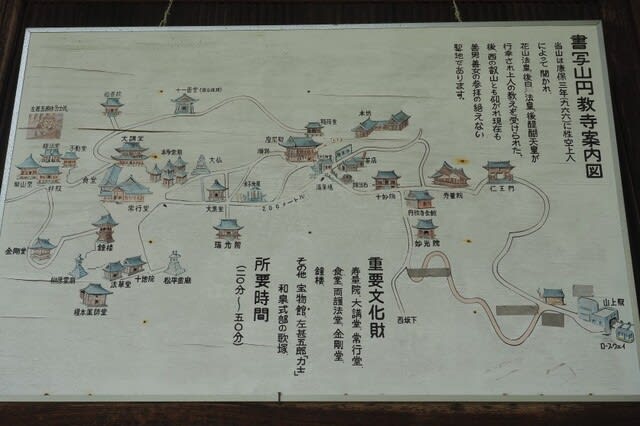 書写山円教寺案内図
当山は康保三年(九六六)に性空上人
によって開かれ
花山法皇、後白河法皇、後醍醐天皇が
行幸され上人の教えを受けられた。
後、西の叡山とも仰がれ現在も
善男善女の参拝の絶えない
聖地であります。
重要文化財
寿量院、大講堂、常行堂、
食堂、両護法堂、金剛堂、
鐘楼
その他 宝物館、左甚五郎「力士」
和泉式部の歌塚、
所要時間
(二〇分〜五〇分)
大講堂
不動堂
食堂
常行堂
金剛堂
鐘楼
法華堂
十地院
松平霊廟
榊原霊廟
榎本薬師堂
大仏
大黒堂
瑞光館
206メートル
摩尼殿
本坊
茶店
十妙院
円教寺会館
妙光院
寿量院
仁王門
西坂下
山上駅
ロープウェイ